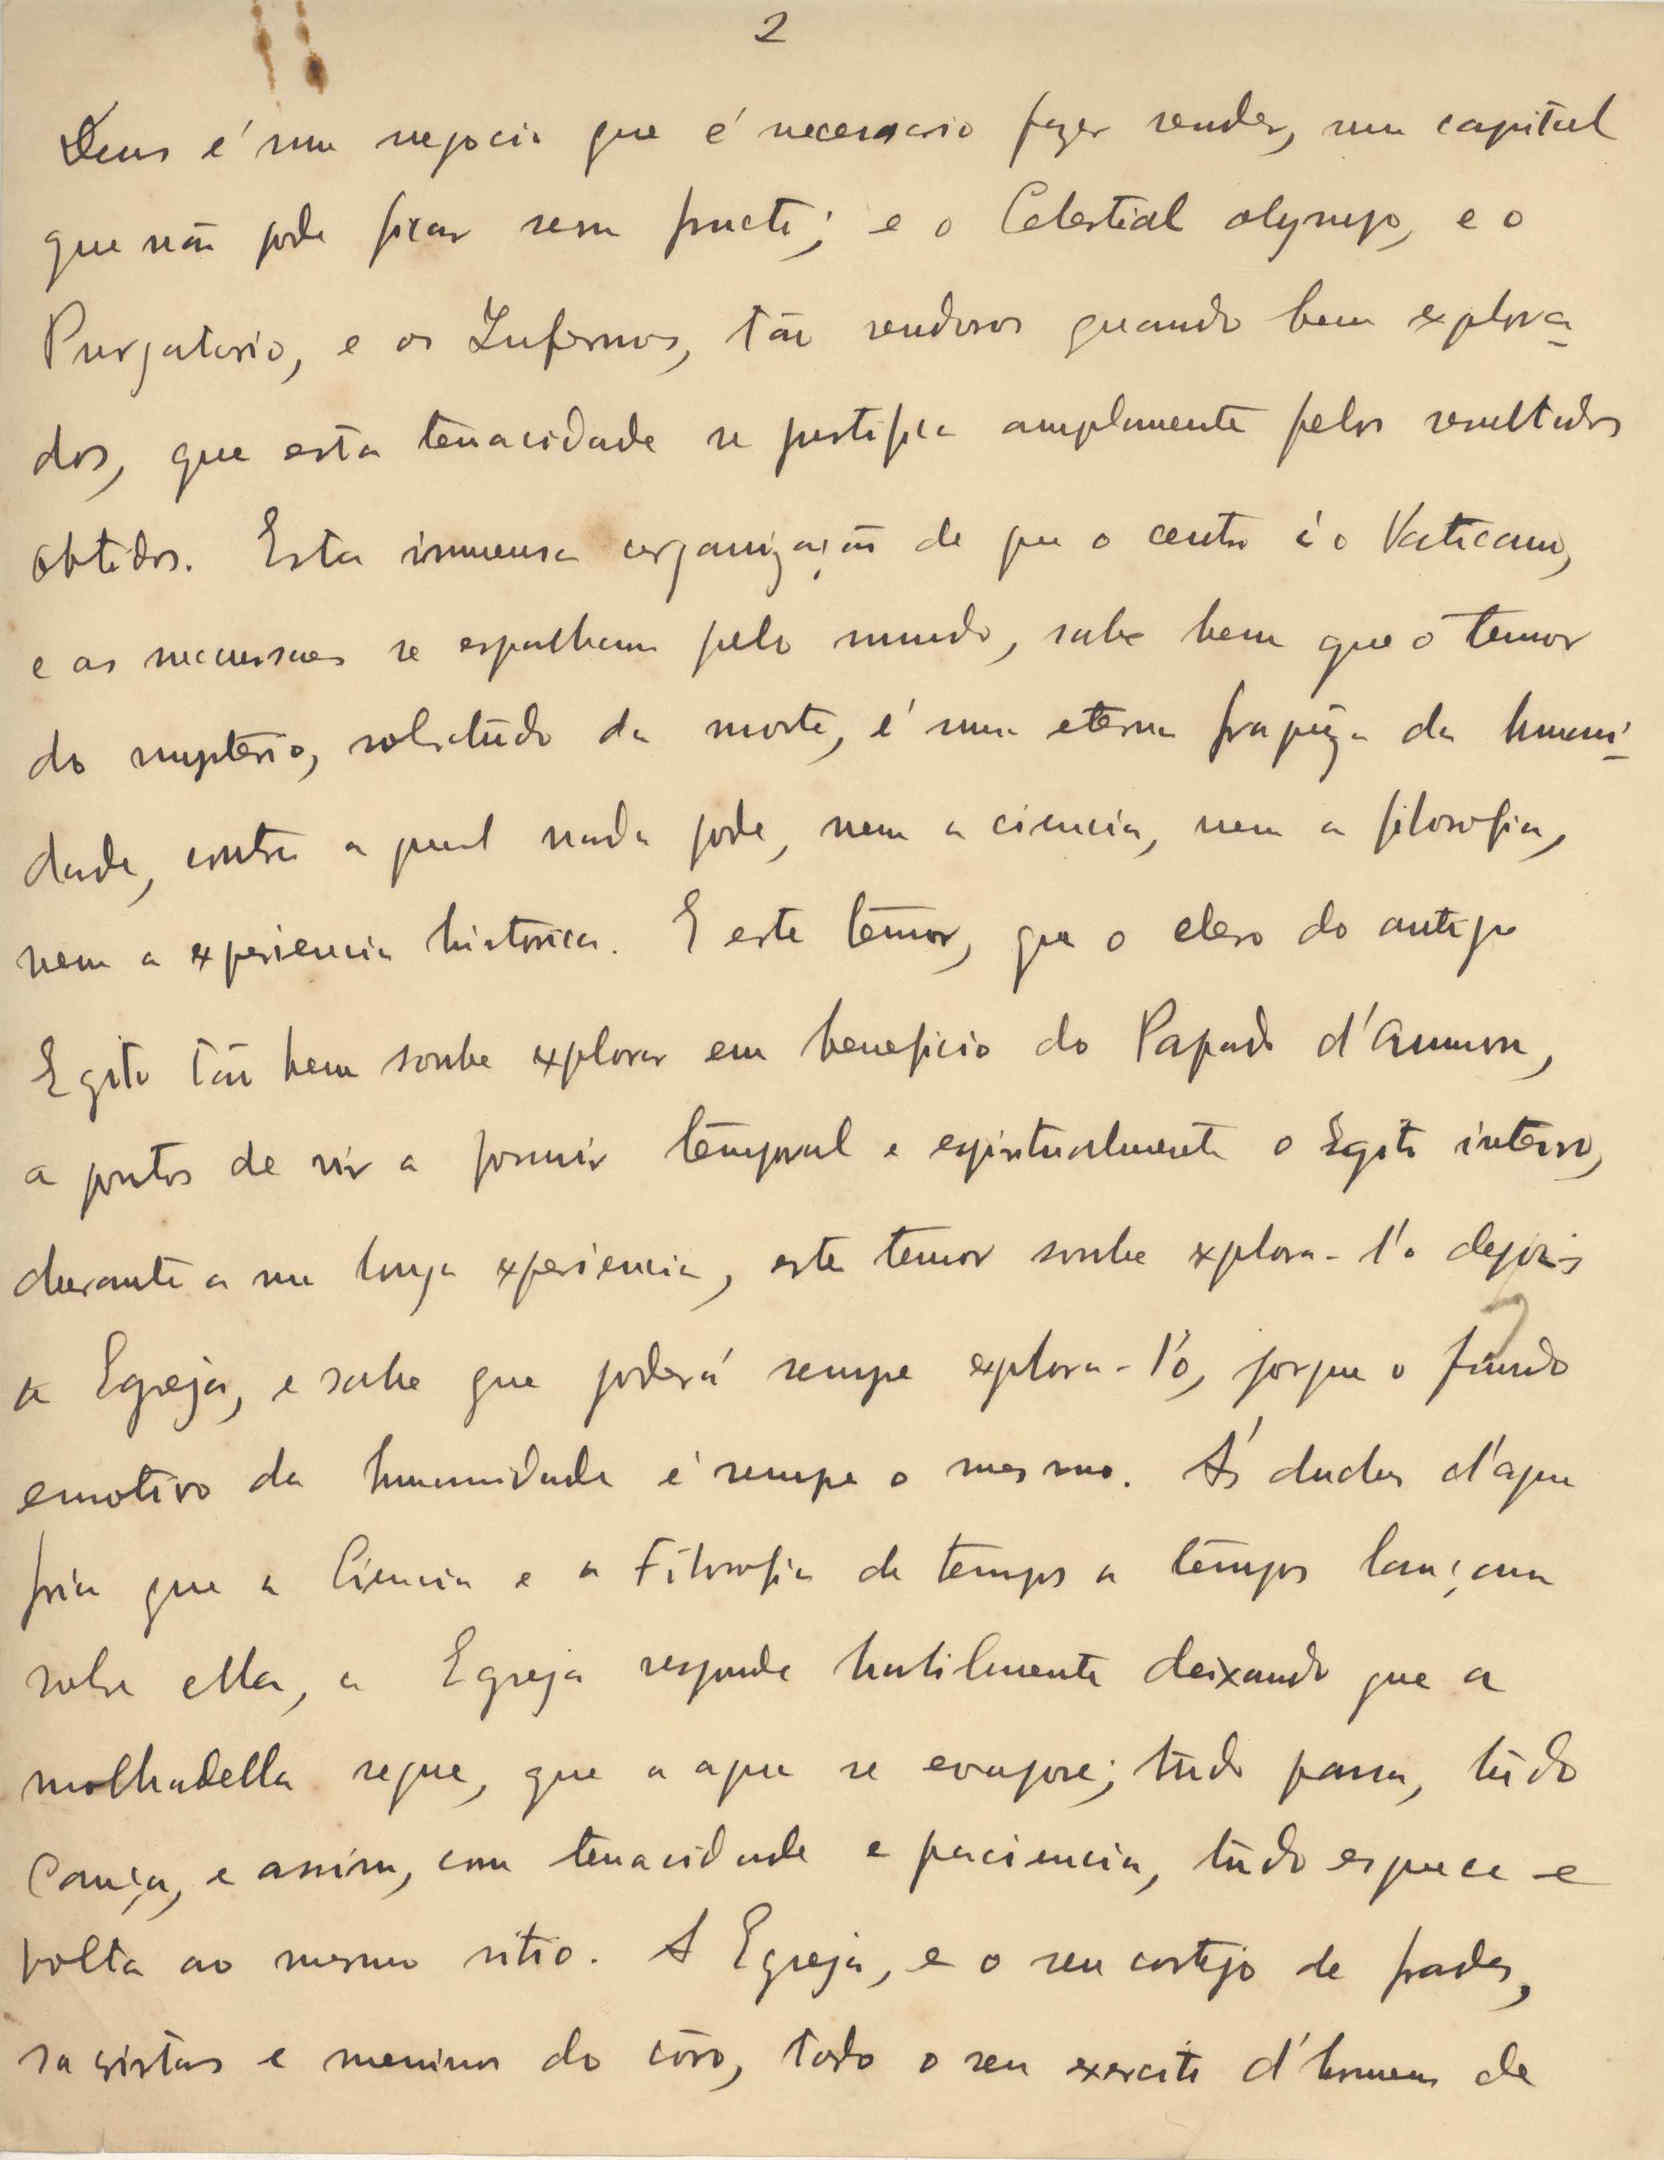 2
Deus é um negocio que é necessario fazer render, um capital
que não pode ficar sem fructo; e o Celestial olympo, e o
Purgatorio, e os Infernos, tão rendosos quando bem explora-
dos, que esta tenacidade se justifica amplamente pelos resultados
obtidos. Esta immensa organização de que o centro é o Vaticano,
e as succursaes se espalham pelo mundo, sabe bem que o temor
do mysterio, sobretudo da morte, é uma eterna fraqueza da humani-
dade, contra a qual nada pode, nem a ciencia, nem a filosofia,
nem a experiencia historica. E este temor, que o clero do antigo
Egito tão bem soube explorar em beneficio do Papado d'Ammon,
a pontos de vir a possuir temporal e espiritualmente o Egito inteiro,
durante a sua longa experiencia, este temor soube explora-l'o depois
a Egreja, e sabe que poderá sempre explora-l'o, porque o fundo
emotivo da humanidade é sempre o mesmo. Ás duchas d'agua
fria que a Ciencia e a Filosofia de tempos a tempos lançam
sobre ella, a Egreja responde habilmente deixando que a
molhadella seque, que a agua se evapore; tudo passa, tudo
cança, e assim, com tenacidade e paciencia, tudo esquece e
volta ao mesmo sitio. A Egreja, e o seu cortejo de frades,
sacristas e meninos do côro, todo o seu exercito d'homens de